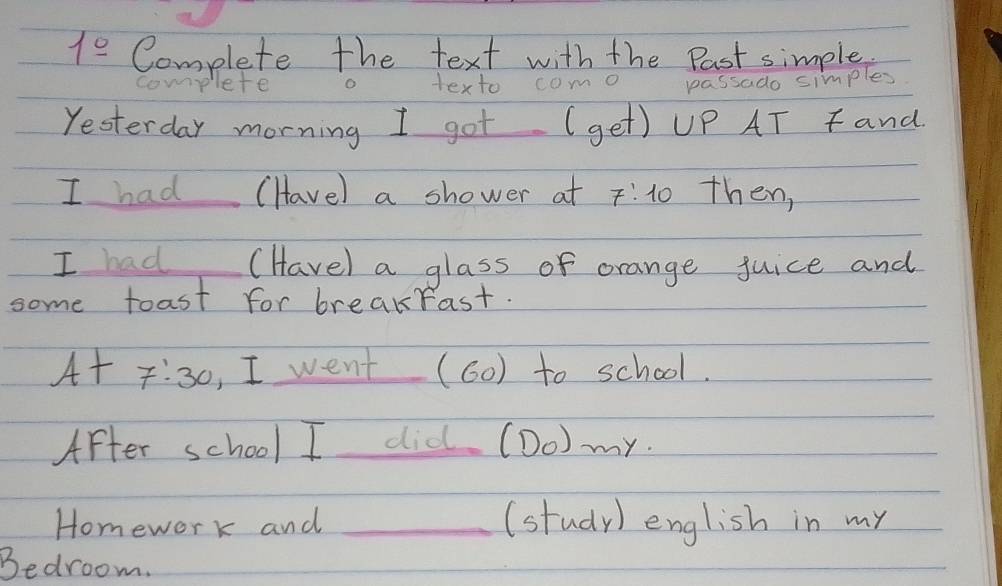 1º Complete the text with the Past simple.
complete o texto com o passado simples
Yesterday morning I got (get) UP AT 7 and
I had (Have) a shower at 7:10 then,
I had (Have) a glass of orange juice and
some toast for breakfast.
At 7:30, I went (Go) to school.
After school I did (Do) my.
Homework and ______ (study) english in my
Bedroom.